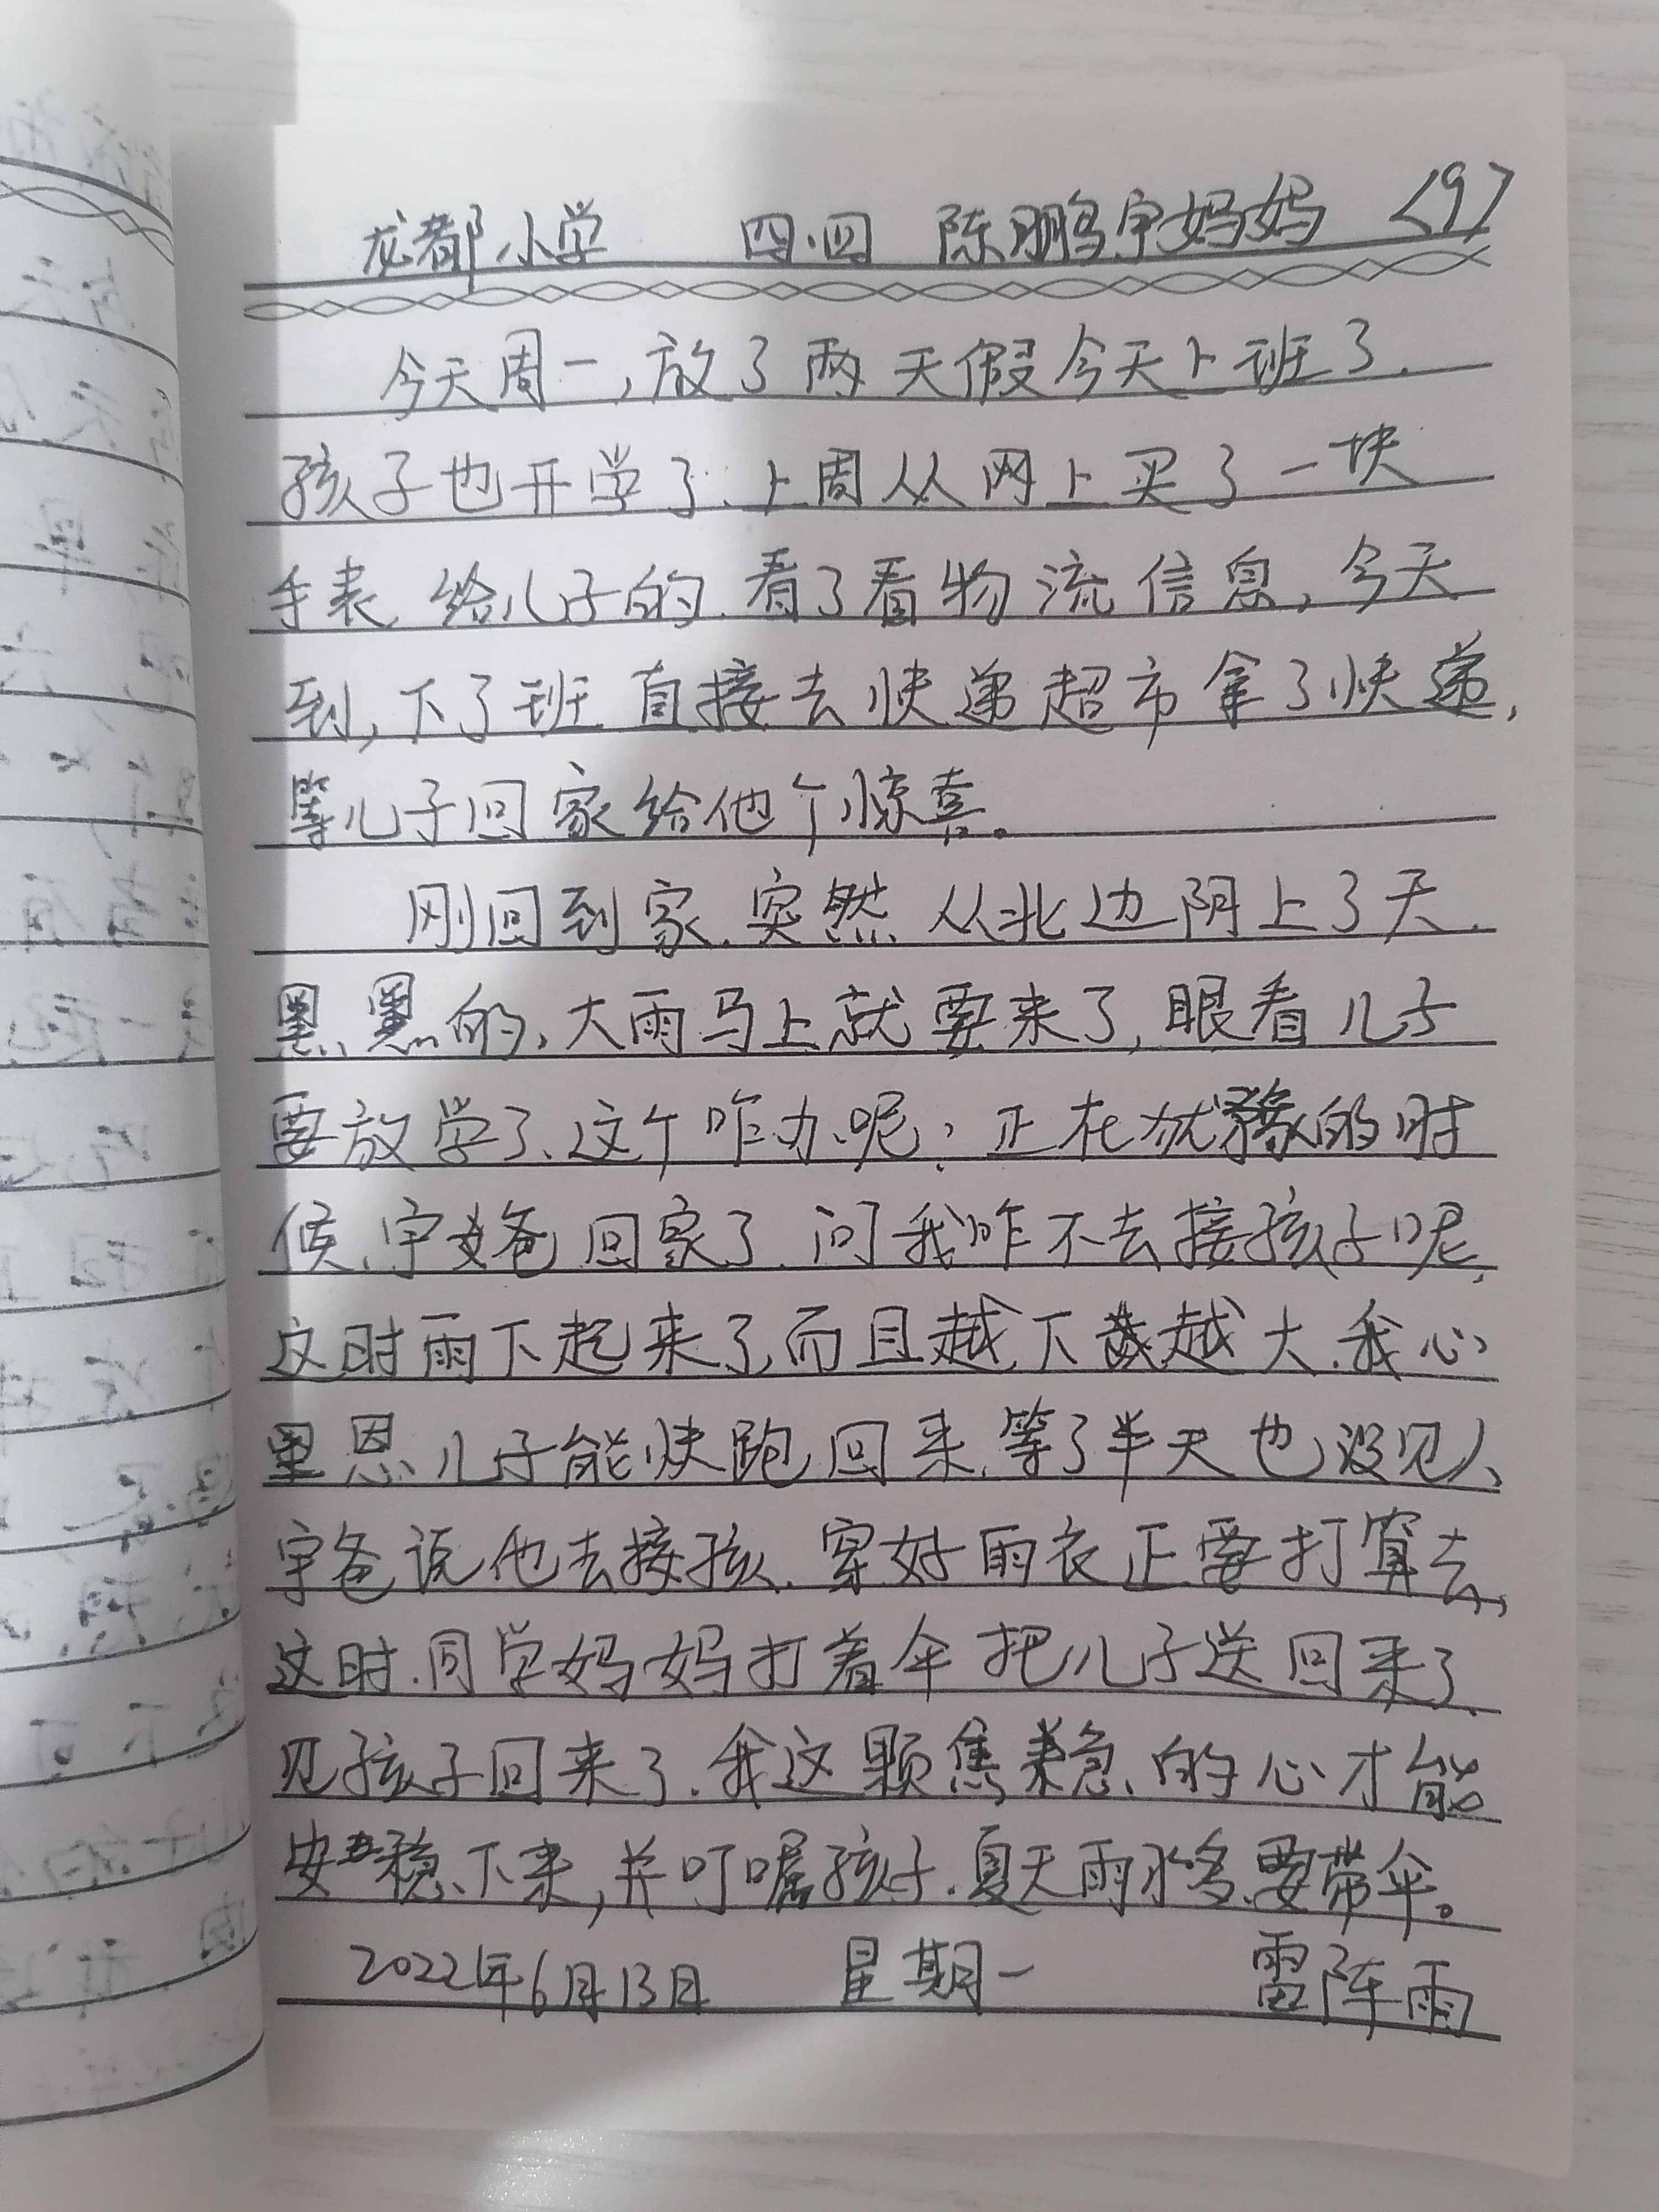 龙都小学 四.四 陈鹏宇妈妈 〈9〉
今天周一,放了两天假今天上班了.
孩子也开学了.上周从网上买了一块
手表.给儿子的.看了看物流信息,今天
到,下了班直接去快递超市拿了快递,
等儿子回家给他个惊喜。
刚回到家.突然从北边阴上了天.
黑黑的、大雨马上就要来了,眼看儿子
要放学了、这个咋办呢?正在犹豫的时
候、宇爸回家了.问我咋不去接孩子呢,
这时雨下起来了,而且越下越大.我心
里思儿子能快跑回来.等了半天也没见人、
宇爸说他去接孩.穿好雨衣正要打算去,
这时.同学妈妈打着伞把儿子送回来了
见孩子回来了.我这颗焦急的心才能
安稳下来,并叮嘱孩子.夏天雨水多要带伞。
2022年6月13日 星期一 雷阵雨